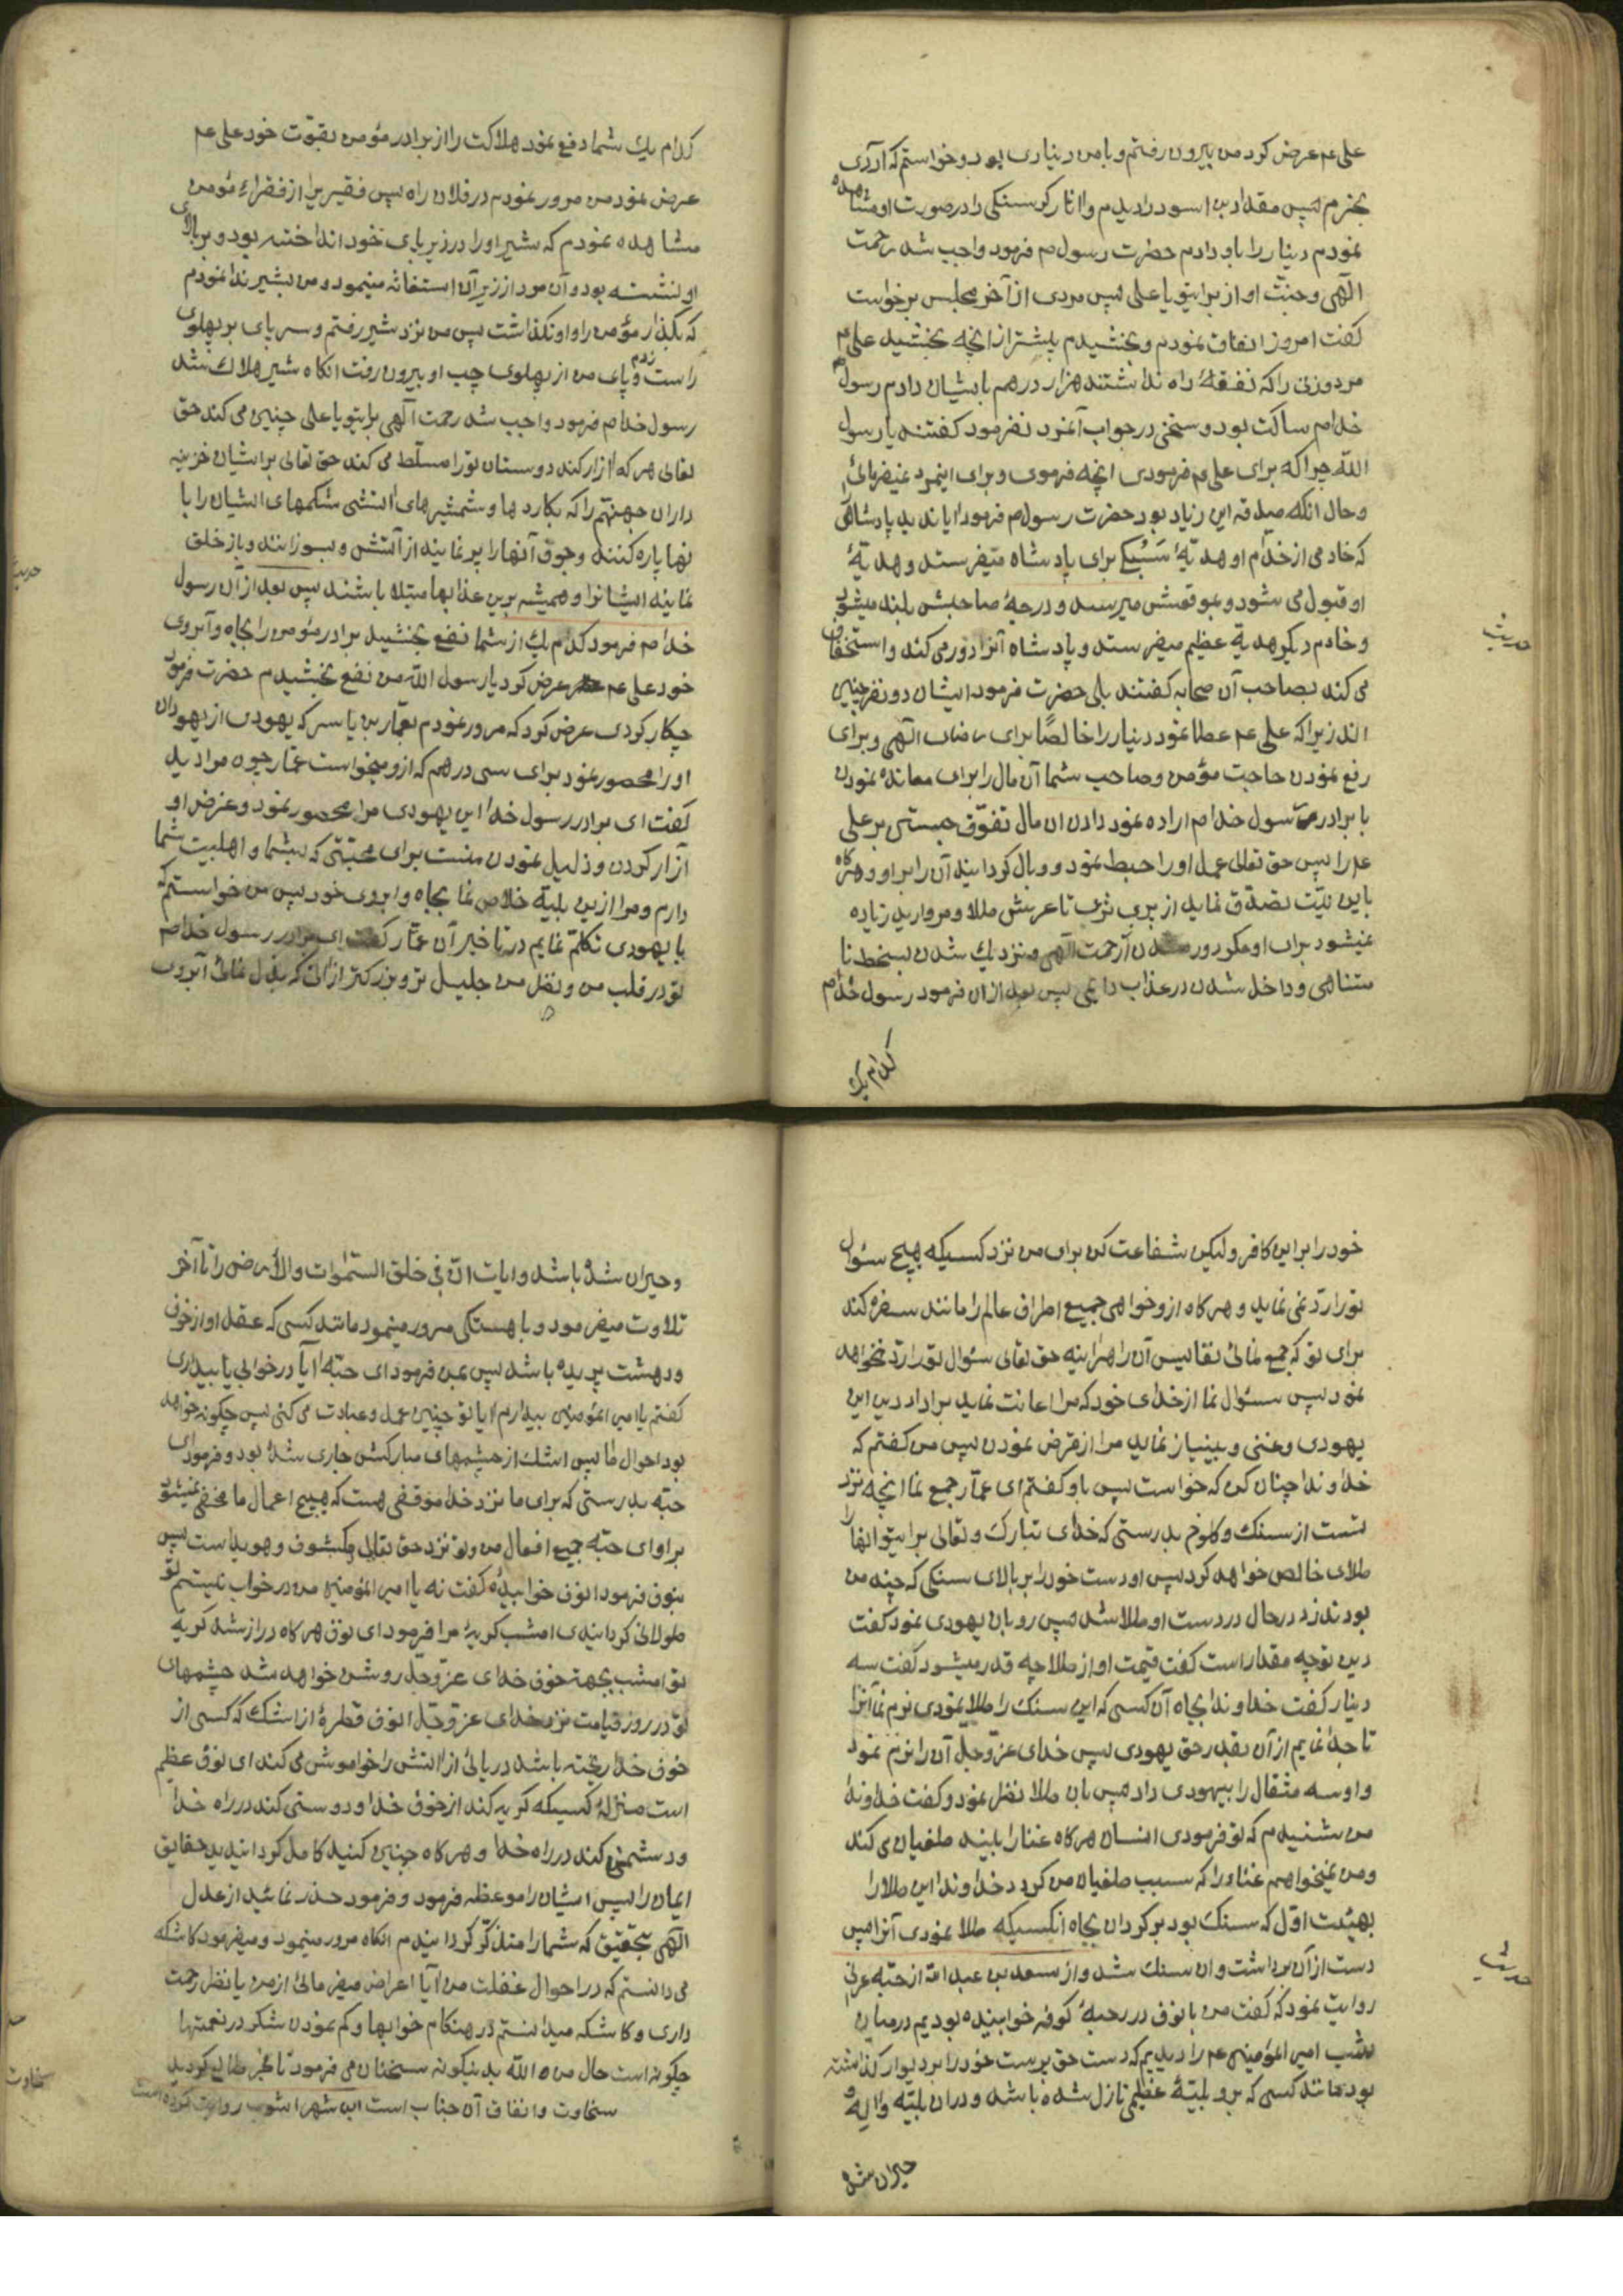 علی عم عرض کرد من بیرون رفتم و با من دیناری بود و خواستم که آردی
بخرم پس مقداد بن اسود را دیدم و اثار کرسنکی را در صورت او مشاهده
نمودم دینار را باو دادم حضرت رسول ص فرمود واجب شد رحمت
الهی و جنت او از برایتو یا علی پس مردی از آخر مجلس برخواست
کفت امروز انفاق نمودم و بخشیدم بیشتر از انچه بخشید علی عم
مرد و زنی را که نفقهٔ راه نداشتند هزار درهم بایشان دادم رسول
خدا ص ساکت بود و سخنی در جواب آنمرد نفرمود کفتند یا رسول
الله چرا که برای علی عم فرمودی انچه فرمودی و برای اینمرد نمیفرمائی
و حال انکه صدقه این زیاد بود حضرت رسول ص فرمود ایا ندیدید پادشاهی
که خادمی از خدام او هدیهٔ سبکی برای پادشاه میفرستد و هدیهٔ
او قبول می شود و بموقعش میرسد و درجهٔ صاحبش بلند میشود
و خادم دیکر هدیهٔ عظیم میفرستد و پادشاه آنرا دور می کند و استخفاف
می کند بصاحب آن صحابه کفتند بلی حضرت فرمود ایشان دو نفر چنین
اند زیرا که علی عم عطا نمود دینار را خالصًا برای رضای الهی و برای
رفع نمودن حاجت مؤمن و صاحب شما آن مال را برای معانده نمودن
با برادر رسول خدا ص اراده نمود دادن ان مال تفوّق جستن بر علی
عم را پس حق تعالی عمل او را حبط نمود و وبال کردانید آن را بر او و هرکاه
باین نیّت تصدّق نماید از بری ثری تا عرش طلا و مروارید زیاده
نمیشود برای او مکر دور شدن از رحمت الهی و نزدیک شدن بسخط نا
متناهی و داخل شدن در عذاب دایمی پس بعد از ان فرمود رسول خدا ص
کدام یک
کدام یک شما دفع نمود هلاکت را از برادر مؤمن بقوّت خود علی عم
عرض نمود من مرور نمودم در فلان راه پس فقیریرا از فقراء مؤمن
مشاهده نمودم که شیر او را در زیر پای خود انداخته بود و بر بالای
او نشسته بود و آن مرد از زیر آن استغاثه مینمود و من بشیر ندا نمودم
که بکذار مؤمن را و او نکذاشت پس من نزد شیر رفتم و سر پای بر پهلوی
راست زدم و پای من از پهلوی چپ او بیرون رفت انکاه شیر هلاک شد
رسول خدا ص فرمود واجب شد رحمت الهی برایتو یا علی چنین می کند حق
تعالی هر که آزار کند دوستان تو را مسلّط می کند حق تعالی بر ایشان خزینه
داران جهنّم را که بکاردها و شمشیرهای آتشی شکمهای ایشان را با
نها پاره کنند و جوف آنها را پر نمایند از آتش و بسوزانند و باز خلق
نمایند ایشانرا و همیشه برین عذابها مبتلا باشند پس بعد از آن رسول
خدا ص فرمود کدام یک از شما نفع بخشید برادر مؤمن را بجاه و آبروی
خود علی عم عرض کرد یا رسول الله من نفع بخشیدم حضرت فرمود
چکار کردی عرض کرد که مرور نمودم بعمّار بن یاسر که یهودی از یهودان
او را محصور نمود برای سی درهم که ازو میخواست عمّار چون مرا دید
کفت ای برادر رسول خدا این یهودی مرا محصور نمود و غرض او
آزار کردن و ذلیل نمودن منست برای محبّتی که بشما و اهلبیت شما
دارم و مرا ازین بلیّه خلاص نما بجاه و ابروی خود پس من خواستم که
با یهودی تکلّم نمایم در تاخیر آن عمّار کفت ای برادر رسول خدا ص
تو در قلب من و نظر من جلیل تر و بزرکتر از انی که بذل نمائی آبروی
خود را بر این کافر و لیکن شفاعت کن برای من نزد کسیکه هیچ سئوال
تو را ردّ نمی نماید و هرکاه ازو خواهی جمیع اطراف عالم را مانند سفره کند
برای تو که جمع نمائی نفایس آن را هراینه حق تعالی سئوال تو را ردّ نخواهد
نمود پس سئوال نما از خدای خود که مرا اعانت نماید بر اداء دین این
یهودی و غنی و بینیاز نماید مرا از قرض نمودن پس من کفتم که
خداوندا چنان کن که خواست پس باو کفتم ای عمّار جمع نما انچه نزد
تست از سنک و کلوخ بدرستی که خدای تبارک و تعالی برایتو انها را
طلای خالص خواهد کرد پس او دست خود را بر بالای سنکی که چند من
بود زد در حال در دست او طلا شد پس رو بان یهودی نمود کفت
دین تو چه مقدار است کفت قیمت او از طلا چه قدر میشود کفت سه
دینار کفت خداوندا بجاه آن کسی که این سنک را طلا نمودی نرم نما آنرا
تا جدا نمایم از آن بقدر حق یهودی پس خدای عزّ و جل آن را نرم نمود
و او سه مثقال را بیهودی داد پس بان طلا نظر نمود و کفت خداوندا
من شنیدم که تو فرمودی انسان هرکاه غنا را بیند طغیان می کند
و من نمیخواهم غنا را که سبب طغیان من کردد خداوندا این طلا را
بهیئت اوّل که سنک بود بر کردان بجاه انکسیکه طلا نمودی آنرا پس
دست از آن برداشت و ان سنک شد و از سعد بن عبد الله از حبّه عرنی
روایت نمود که کفت من با نوف در رحبهٔ کوفه خوابیده بودیم در میان
شب امیر المؤمنین عم را دیدیم که دست حق پرست خود را بر دیوار کذاشته
بود مانند کسی که برو بلیّهٔ عظیمی نازل شده باشد و در ان بلیّه واله و
حیران شده
و حیران شده باشد و ایات انّ فی خلق السّموات و الأرض را تا آخر
تلاوت میفرمود و باهستکی مرور مینمود مانند کسی که عقل او از خوف
و دهشت پریده باشد پس بمن فرمود ای حبّه آیا در خوابی یا بیداری
کفتم یا امیر المؤمنین بیدارم ایا تو چنین عمل و عبادت می کنی پس چکونه خواهد
بود احوال ما پس اشک از چشمهای مبارکش جاری شده بود و فرمود ای
حبّه بدرستی که برای ما نزد خدا موقفی هست که هیچ اعمال ما مخفی نمیشود
بر او ای حبّه جمیع افعال من و تو نزد حق تعالی مکشوف و هویداست پس
بنوف فرمود ای نوف خوابیدهٔ کفت نه یا امیر المؤمنین من در خواب نیستم تو
طولانی کردانیدی امشب کریهٔ مرا فرمود ای نوف هرکاه دراز شد کریه
تو امشب بجهة خوف خدای عزّ و جلّ روشن خواهد شد چشمهای
تو در روز قیامت نزد خدای عزّ و جلّ ای نوف قطرهٔ از اشک که کسی از
خوف خدا ریخته باشد دریائی از آتش را خواموش می کند ای نوف عظیم
است منزلهٔ کسیکه کریه کند از خوف خدا و دوستی کند در راه خدا
و دشمنی کند در راه خدا و هرکاه چنین کنید کامل کردانیدید حقایق
ایمان را پس ایشان را موعظه فرمود و فرمود حذر نمائید از عدل
الهی بتحقیق که شما را متذکّر کردانیدم انکاه مرور مینمود و میفرمود کاشکه
می دانستم که در احوال غفلت من آیا اعراض میفرمائی از من یا نظر رحمت
داری و کاشکه میدانستم در هنکام خوابها و کم نمودن شکر در نعمتها
چکونه است حال من و الله بدینکونه سخنان می فرمود تا فجر طالع کردید
سخاوت و انفاق آن جناب است ابن شهر اشوب روایت کرده است
حدیث
حدیث
حدیث
سخاوت